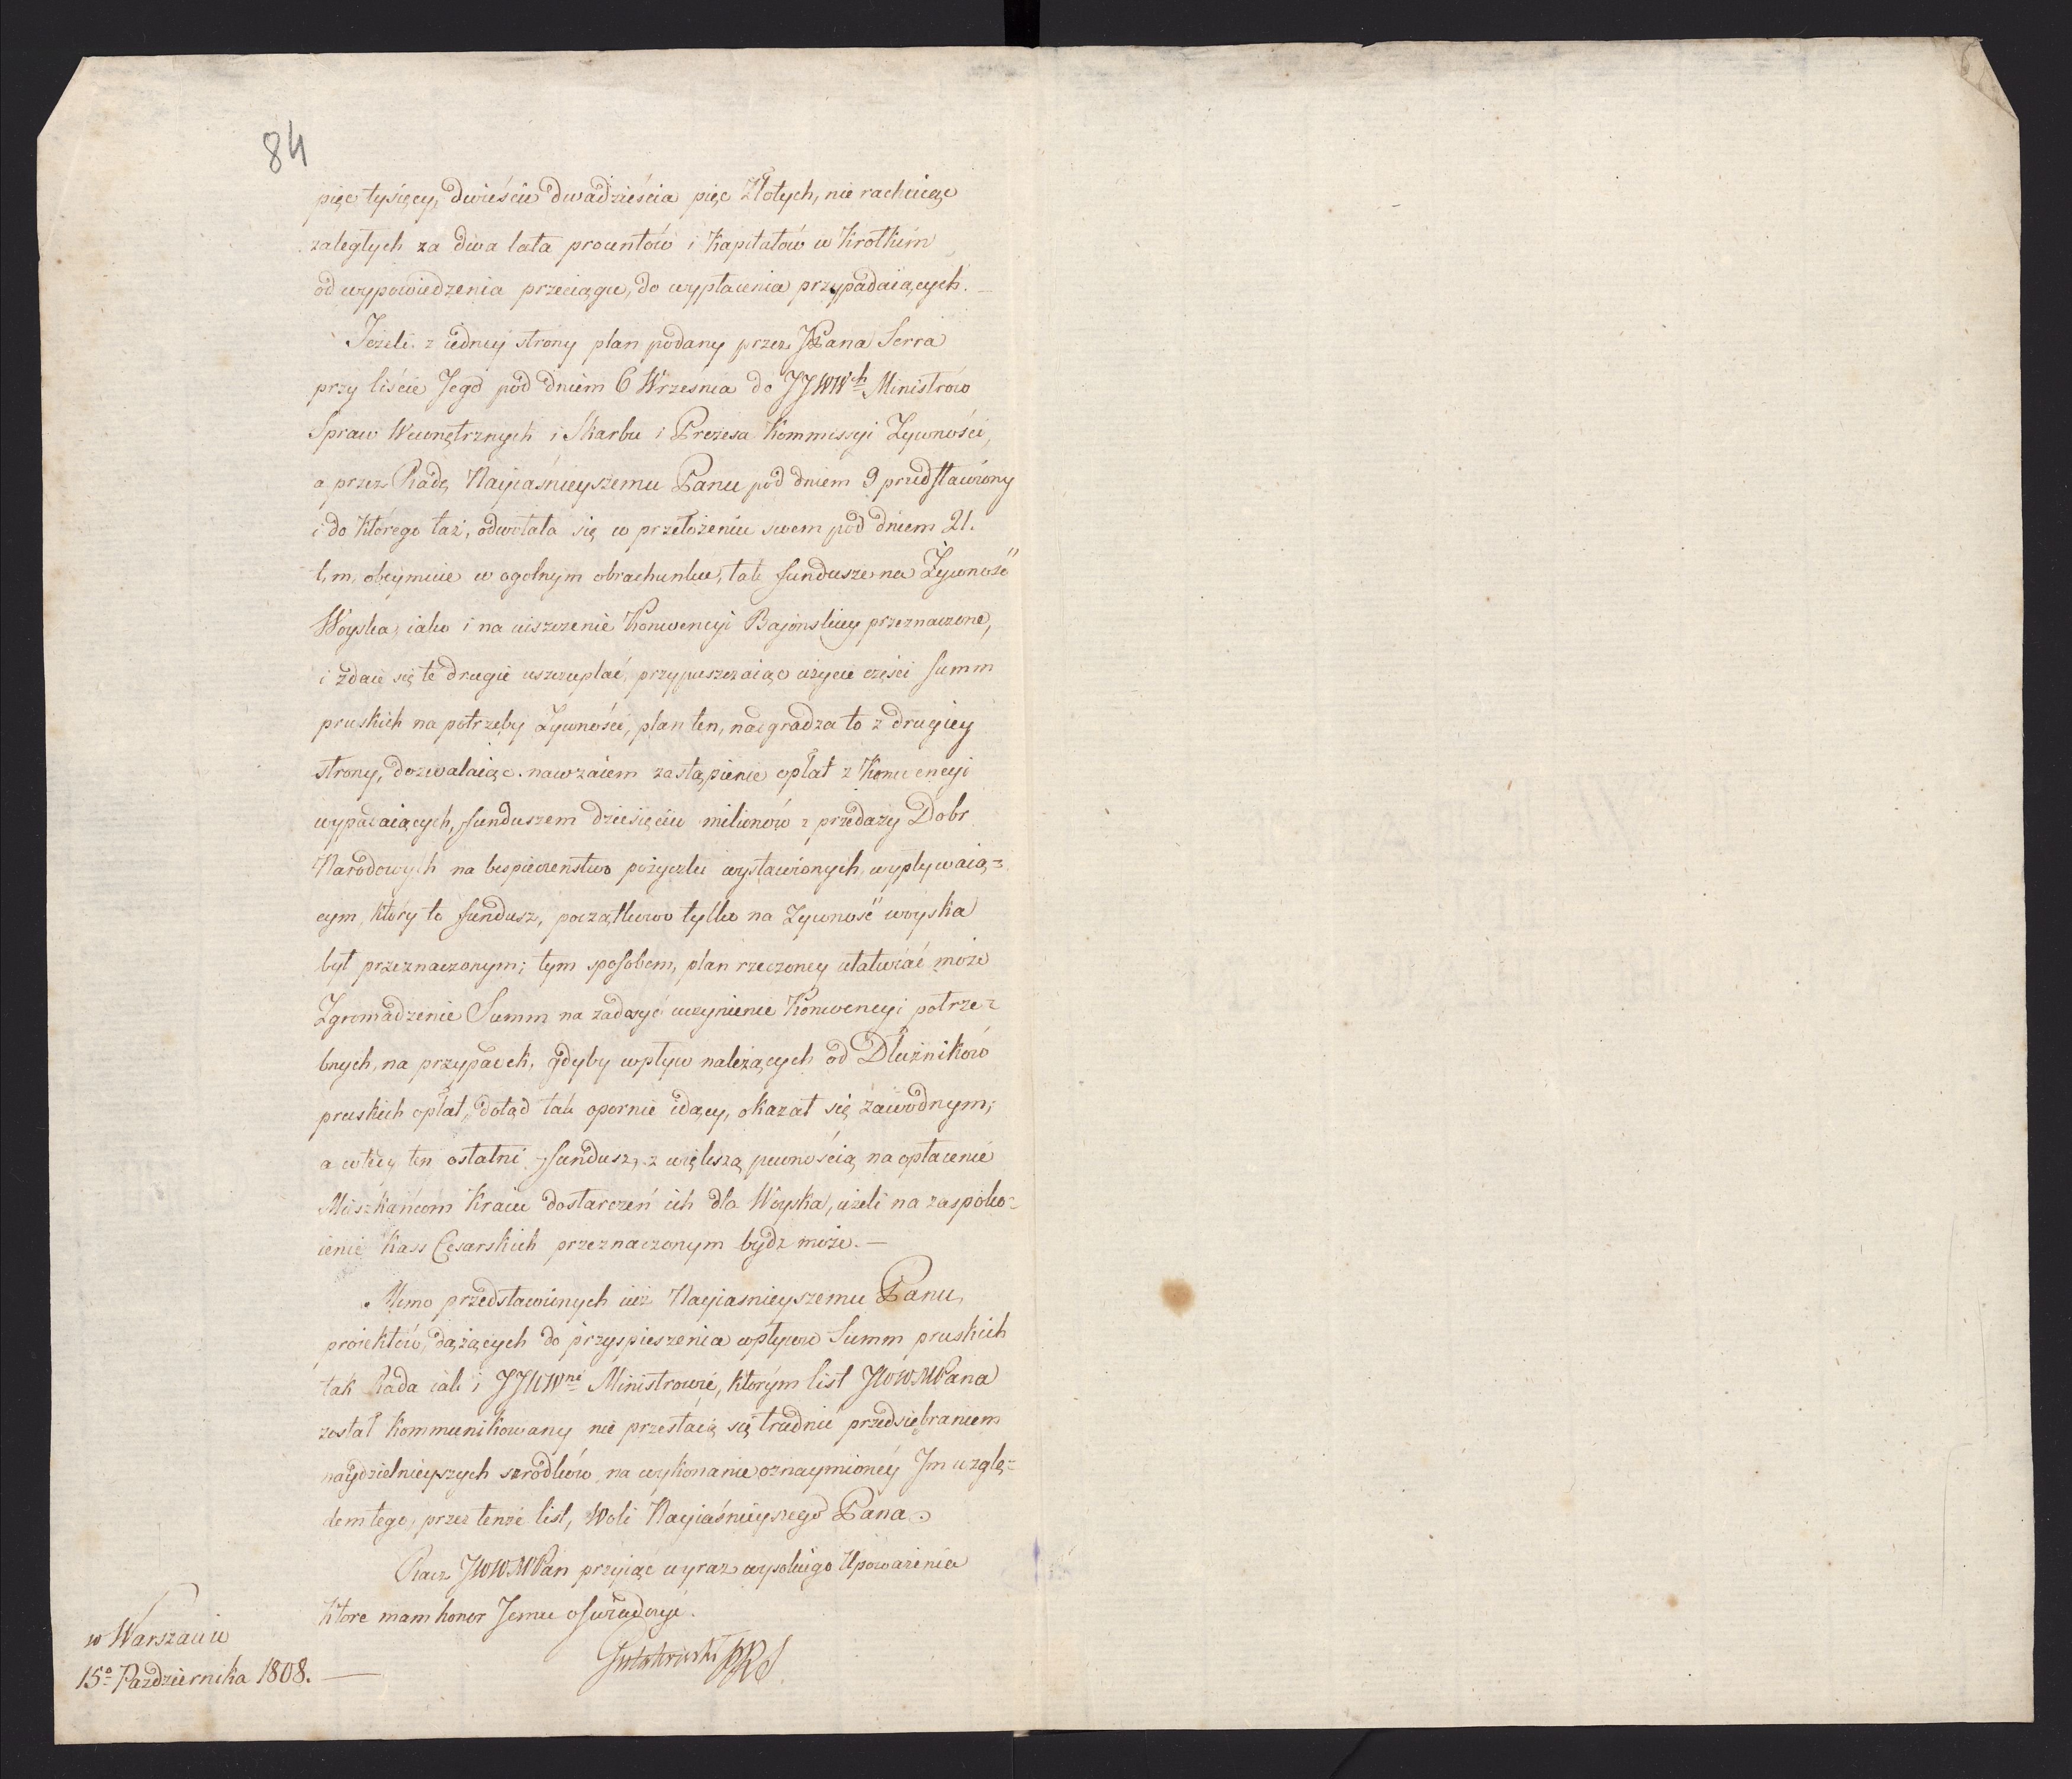 84
pięc tysięcy, dwieście dwadzieścia pięc Złotych, nie rachuiąc
zaległych za dwa lata procentów i Kapitałów w Krotkim
od wypowiedzenia przeciągu, do wypłacenia przypadaiących. —
Jeżeli z iedney strony plan podany przez JPana Serra
przy liście Jego pod dniem 6 Września do JJWWch Ministrow
Spraw Wewnętrznych i Skarbu i Prezesa Kommissyi Zywności,
a przez Radę Nayiaśnieyszemu Panu pod dniem 9 przedstawiony
i do którego taż, odwołała się w przełożeniu swem pod dniem 21.
t. m. obeymuie w ogolnym obrachunku, tak fundusze na Żywność
Woyska, iako i na uiszczenie Konwencyi Bajońskiey przeznaczone,
i zdaie się te drugie uszczuplać, przypuszczaiąc użycie części summ
pruskich na potrzeby Zywności, plan ten, nadgradza to z drugiey
strony, dozwalaiąc nawzaiem zastąpienie opłat z Konwencyi
wypadaiących, funduszem dziesięciu milionów z przedaży Dobr
Narodowych na bespieczeństwo pożyczki wystawionych, wypływaią=
cym, który to fundusz, początkowo tylko na Zywność woyska
był przeznaczonym; tym sposobem, plan rzeczoney ułatwiać może
Zgromadzenie Summ na zadosyć uczynienie Konwencyi potrze=
bnych, na przypadek, gdyby wpływ należących od Dłużników
pruskich opłat, dotąd tak opornie idący, okazał się zawodnym;
a wtedy ten ostatni fundusz, z większą pewnością na opłacenie
Mieszkańcom Kraiu dostarczeń ich dla Woyska, iżeli na zaspoko=
ienie Kass Cesarskich przeznaczonym bydz może. —
Mimo przedstawionych iuż Nayiasnieyszemu Panu,
proiektów, dążących do przyspieszenia wpływu Summ pruskich
tak Rada iak i JJWWni Ministrowie, którym list JWWMPana
został kommunikowany nie przestaią się trudnić przedsiębraniem
naydzielnieyszych szrodków, na wykonanie oznaymioney Im wzglę=
dem tego, przez tenże list, Woli Nayiaśnieyszego Pana.
Racz JWWMPan przyiąc wyraz wysokiego Upoważenia
które mam honor Jemu oświadczyć.
Gutakowski PRS
w Warszawie
15o Pazdziernika 1808. —